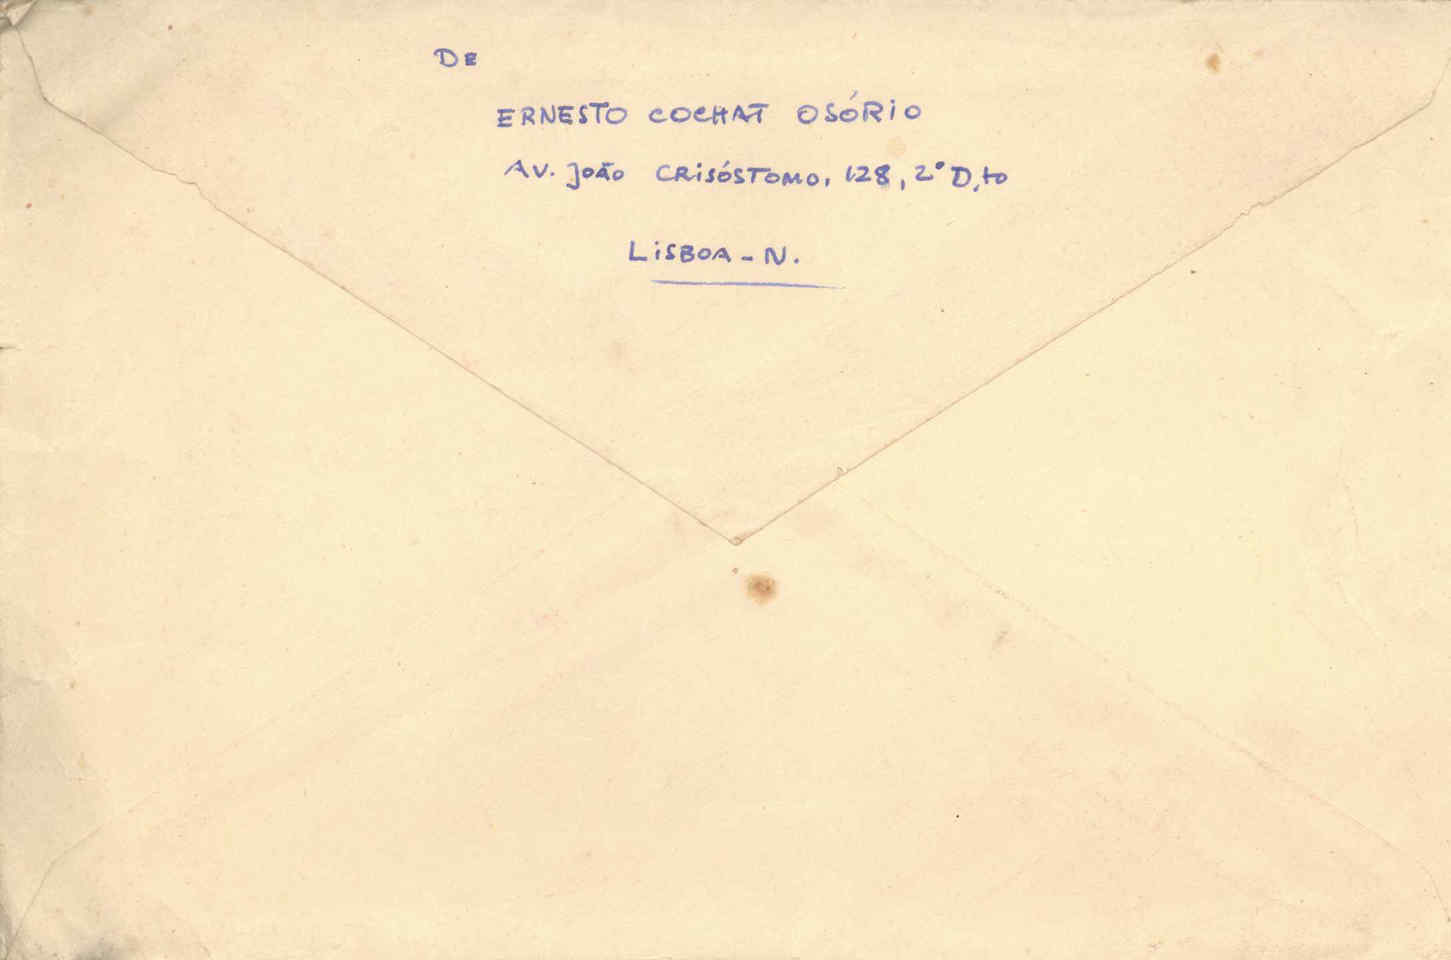 De
ERNESTO COCHAT OSÓRIO
Av. João CRiSÓSTOMO, 128, 2º D.to
LiSBOA - N.